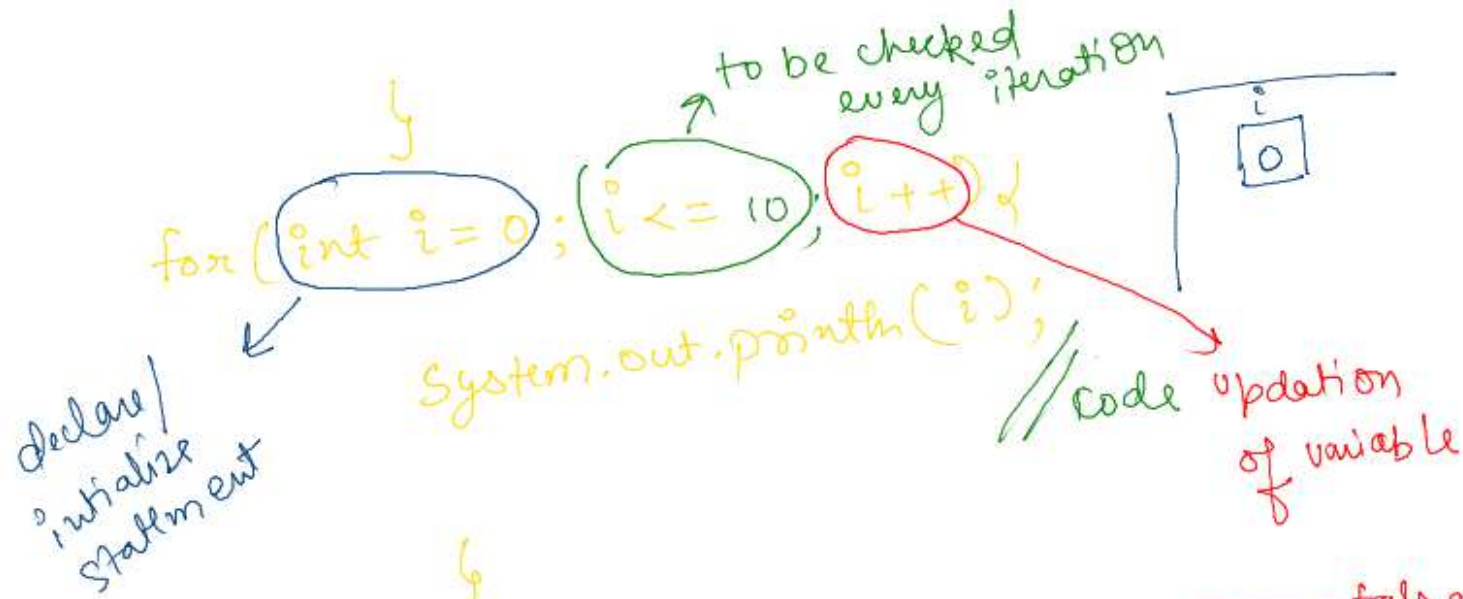 to be checked
every iteration
}
i
0
for(int i=0; i<= 10; i++) {
System.out.println(i);
// code
updation
of variable
declare/
intialize
statement
}